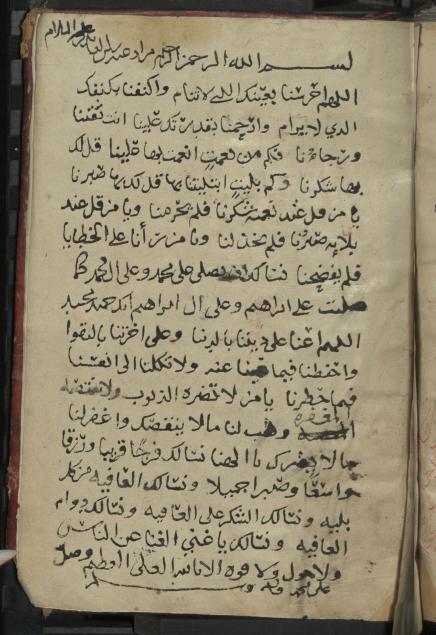 بسم الله الرحمن الرحيم
اللهم احرسنا بعينك التي لا تنام واكنفنا بكنفك
الذي لا يرام وارحمنا بقدرتك علينا انت ثقتنا
ورجاؤنا فكم من نعمت انعمت بها علينا قل لك
بها شكرنا وكم بليت ابتليتنا بها قل لك بها صبرنا
يا من قل عند نعمته شكرنا فلم يحرمنا ويا من قل عند
بلايه صبرنا فلم يخذلنا ويا من رآنا على الخطايا
فلم يفضحنا نسالك ان تصلي على محمد وعلى ال محمد كما
صليت على ابراهيم وعلى ال ابراهيم انك حميد مجيد
اللهم اعنا على ديننا بالدنيا وعلى اخرتنا بالتقوا
واحفظنا فيما غبنا عنه ولا تكلنا الى انفسنا
فيما حظرنا يا من لا تضره الذنوب ولا تنقصه
المغفرة وهب لنا ما لا ينقصك واغفر لنا
ما لا يضرك يا الهنا نسالك فرجا قريبا ورزقا
واسعا وصبرا جميلا ونسالك العافيه من كل
بليه ونسالك الشكر على العافيه ونسالك دوام
العافيه ونسالك يا غني الغنا عن الناس
ولا حول ولا قوة الا بالله العلي العظيم وصل
على محمد واله وسلم